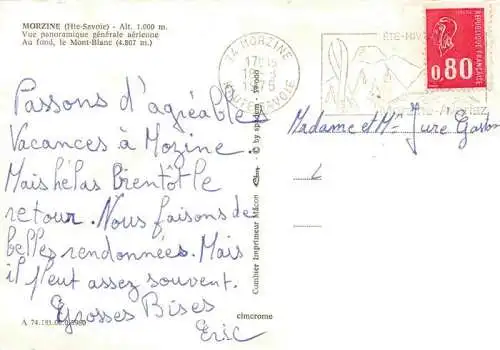 MORZINE (Hte-Savoie) - Alt. 1.000 m.
Vue panoramique générale aérienne
Au fond, le Mont-Blanc (4.807 m.)
Passons d'agréables
Vacances à Mozine.
Mais hélas Bientôt le
retour. Nous faisons de
belles rendonnées. Mais
il pleut assez souvent.
Grosses Bises
Eric
A 74.191.00.0.3960
cimcrome
Combier Imprimeur Mâcon
© by spadem
74 MORZINE
HAUTE-SAVOIE
ÉTÉ-HIVER
RÉPUBLIQUE FRANÇAISE
0,80
Madame et Mr Jure Gaston